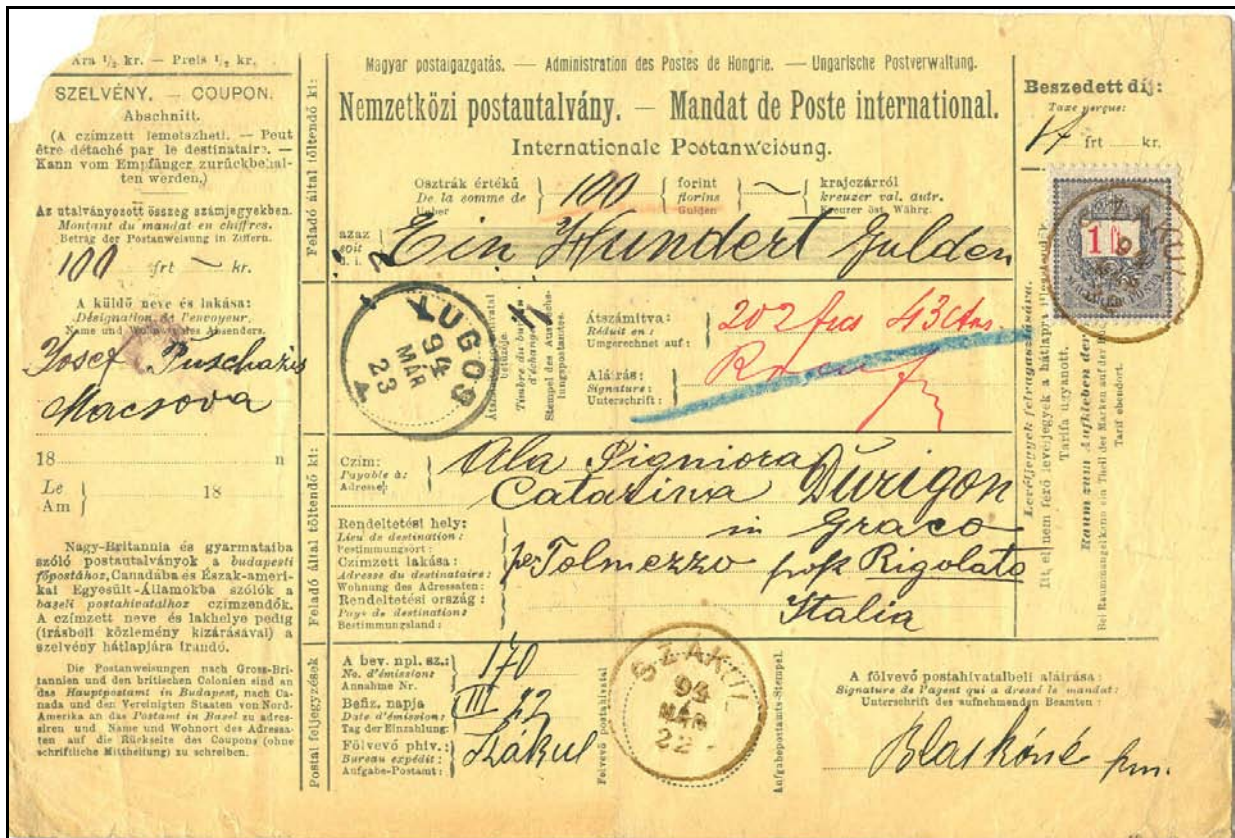 Ára ½ kr. — Preis ½ kr.
SZELVÉNY. — COUPON.
Abschnitt.
(A czímzett lemetszheti. — Peut
être détaché par le destinataire. —
Kann vom Empfänger zurückbehal-
ten werden.)
Az utalványozott összeg számjegyekben.
Montant du mandat en chiffres.
Betrag der Postanweisung in Ziffern.
100 frt — kr.
A küldő neve és lakása:
Désignation de l'envoyeur.
Name und Wohnort des Absenders.
Josef
Macsova
18 n
Le
Am } 18
Nagy-Britannia és gyarmataiba
szóló postautalványok a budapesti
főpostához, Canadába és Észak-ameri-
kai Egyesült-Államokba szólók a
baseli postahivatalhoz czímzendők.
A czímzett neve és lakhelye pedig
(írásbeli közlemény kizárásával) a
szelvény hátlapjára írandó.
Die Postanweisungen nach Gross-Bri-
tannien und den britischen Colonien sind an
das Hauptpostamt in Budapest, nach Ca-
nada und den Vereinigten Staaten von Nord-
Amerika an das Postamt in Basel zu adres-
siren und Name und Wohnort des Adressa-
ten auf die Rückseite des Coupons (ohne
schriftliche Mittheilung) zu schreiben.
Feladó által töltendő ki:
Magyar postaigazgatás. — Administration des Postes de Hongrie. — Ungarische Postverwaltung.
Nemzetközi postautalvány. — Mandat de Poste international.
Internationale Postanweisung.
Osztrák értékű
De la somme de
Ueber
100
forint
florins
Gulden
—
krajczárról
kreuzer val. autr.
Kreuzer öst. Währg.
azaz
soit
d. i.
Ein Hundert Gulden
LUGOS
94
MÁR
23
Timbre du bureau
d'échange
Stempel des Auswechs-
lungspostamtes.
Átszámítva:
Réduit en:
Umgerechnet auf:
202 fcs 43 cts
Aláírás:
Signature:
Unterschrift:
Feladó által töltendő ki:
Czím:
Payable à:
Adresse:
Ala Signiora
Catarina Durigon
Rendeltetési hely:
Lieu de destination:
Bestimmungsort:
in Graco
Czímzett lakása:
Adresse du destinataire:
Wohnung des Adressaten:
per Tolmezzo post Rigolato
Rendeltetési ország:
Pays de destination:
Bestimmungsland:
Italia
Postai feljegyzések
A bev. npl. sz.:
No. d'émission:
Annahme Nr.
170
Befiz. napja
Date d'émission:
Tag der Einzahlung:
III 22
Fölvevő phiv.:
Bureau expédit:
Aufgabe-Postamt:
Szákul
Fölvevő postahivatal
SZÁKUL
94
MÁR
22
Aufgabepostamts-Stempel.
A fölvevő postahivatalbeli aláírása:
Signature de l'agent qui a dressé le mandat:
Unterschrift des aufnehmenden Beamten:
Blaskóné pm.
Beszedett díj:
Taxe perçue:
frt kr.
1 ft
MAGYAR KIR. POSTA
Levéljegyek felragasztására.
Itt el nem férő levéljegyek a hátlapra
Tarifa ugyanott.
Raum zum Aufkleben der
Bei Raummangel kann ein Theil der Marken auf der
Tarif ebendort.